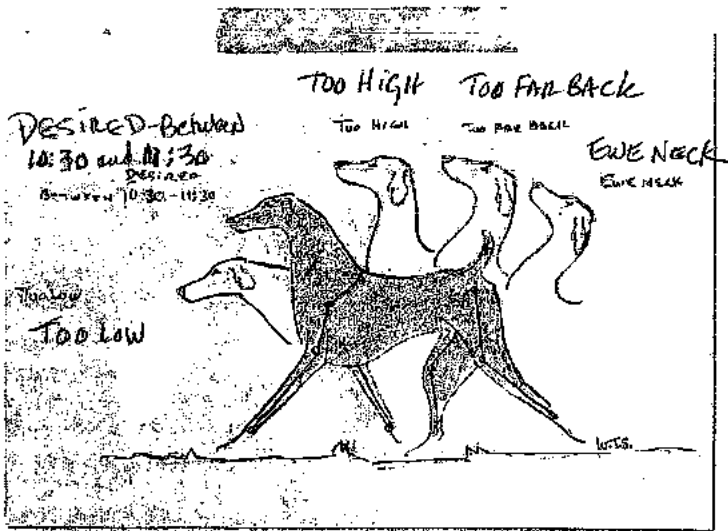 TOO HIGH
TOO FAR BACK
TOO HIGH
TOO FAR BACK
DESIRED-Between
10:30 and 11:30
DESIRED
BETWEEN 10:30-11:30
EWE NECK
EWE NECK
TOO LOW
TOO LOW
W.T.S.